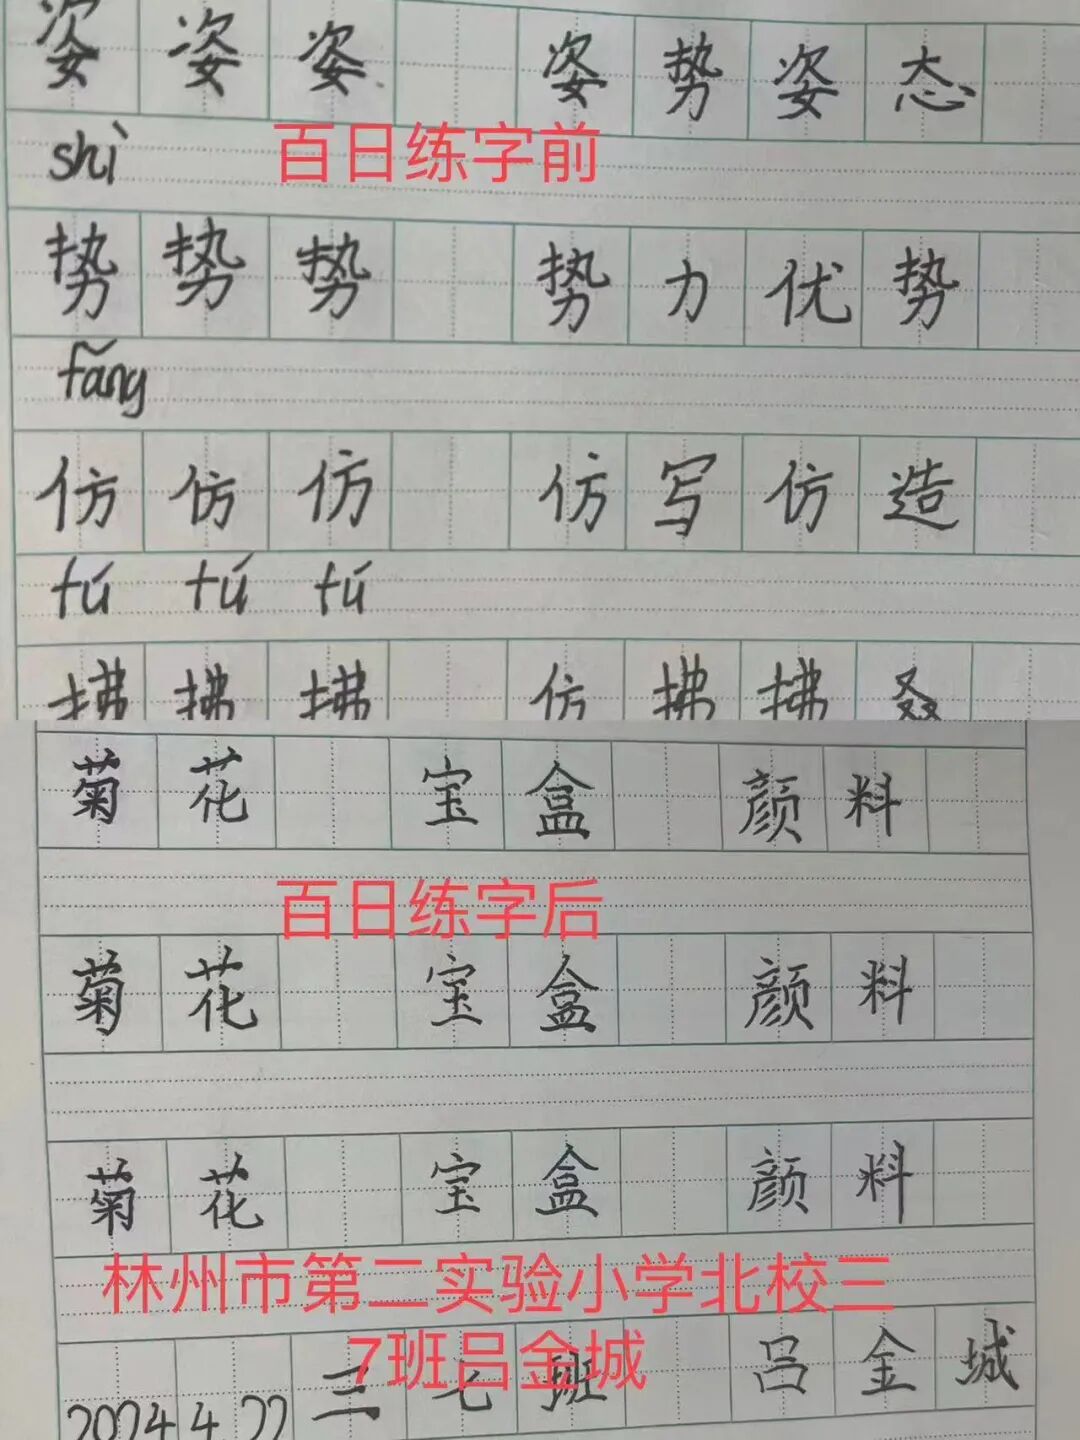 姿姿姿 姿势姿态
shì
百日练字前
势势势 势力优势
fǎng
仿仿仿 仿写仿造
fú fú fú
拂拂拂 仿拂拂
菊花 宝盒 颜料
百日练字后
菊花 宝盒 颜料
菊花 宝盒 颜料
林州市第二实验小学北校三
7班吕金城
2024.4.22 三七班 吕金城